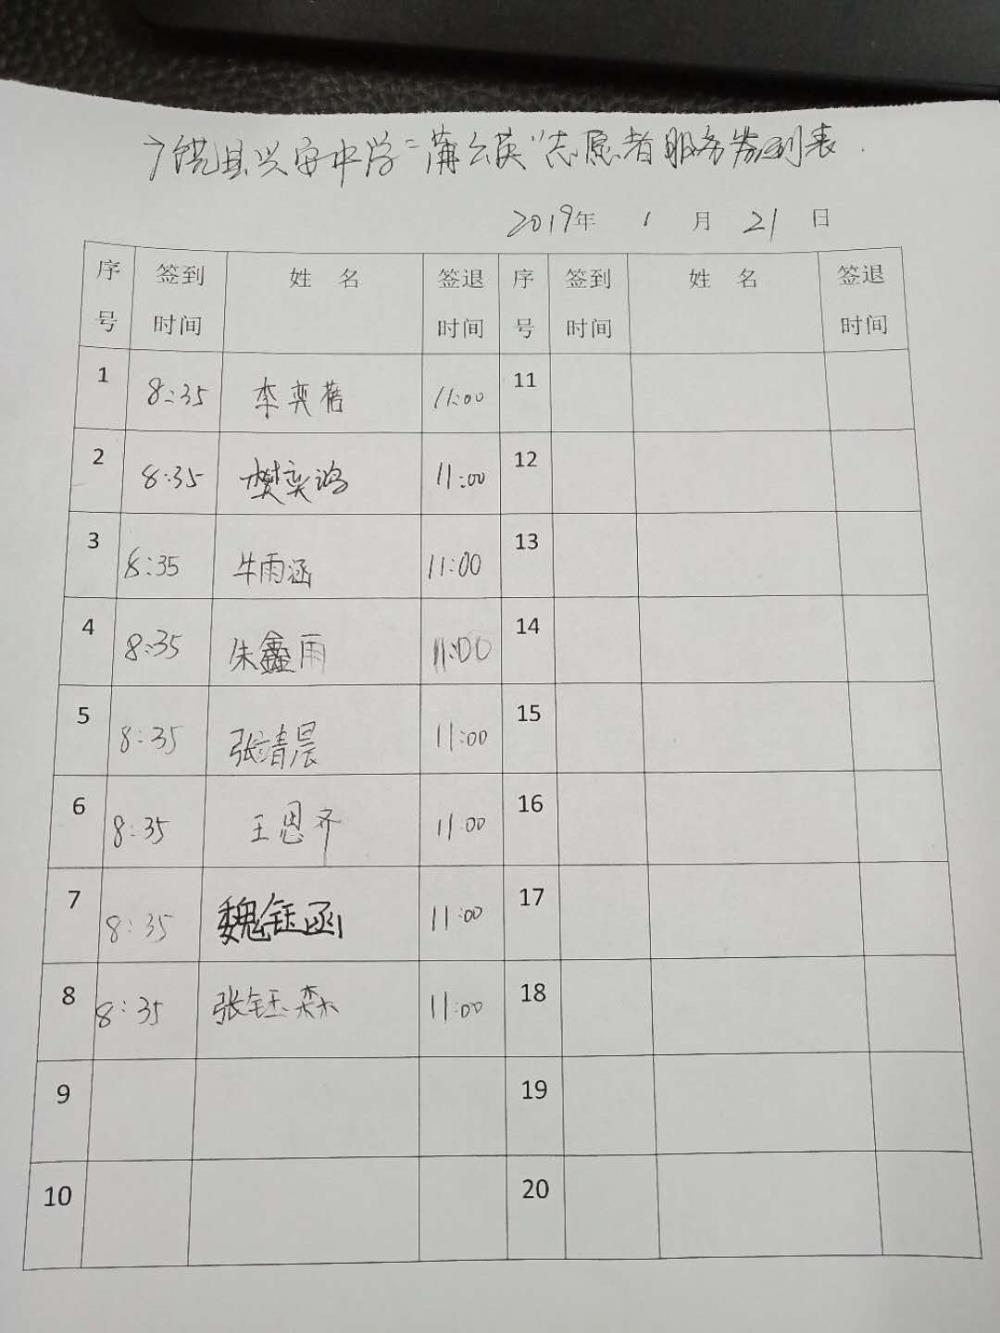 广饶县兴安中学"蒲公英"志愿者服务签到表.
2019年 1 月 21 日
序号 签到时间 姓 名 签退时间 序号 签到时间 姓 名 签退时间
1 8:35 李奕蓓 11:00 11
2 8:35 樊奕鸿 11:00 12
3 8:35 牛雨涵 11:00 13
4 8:35 朱鑫雨 11:00 14
5 8:35 张靖晨 11:00 15
6 8:35 王恩齐 11:00 16
7 8:35 魏钰函 11:00 17
8 8:35 张钰森 11:00 18
9 19
10 20